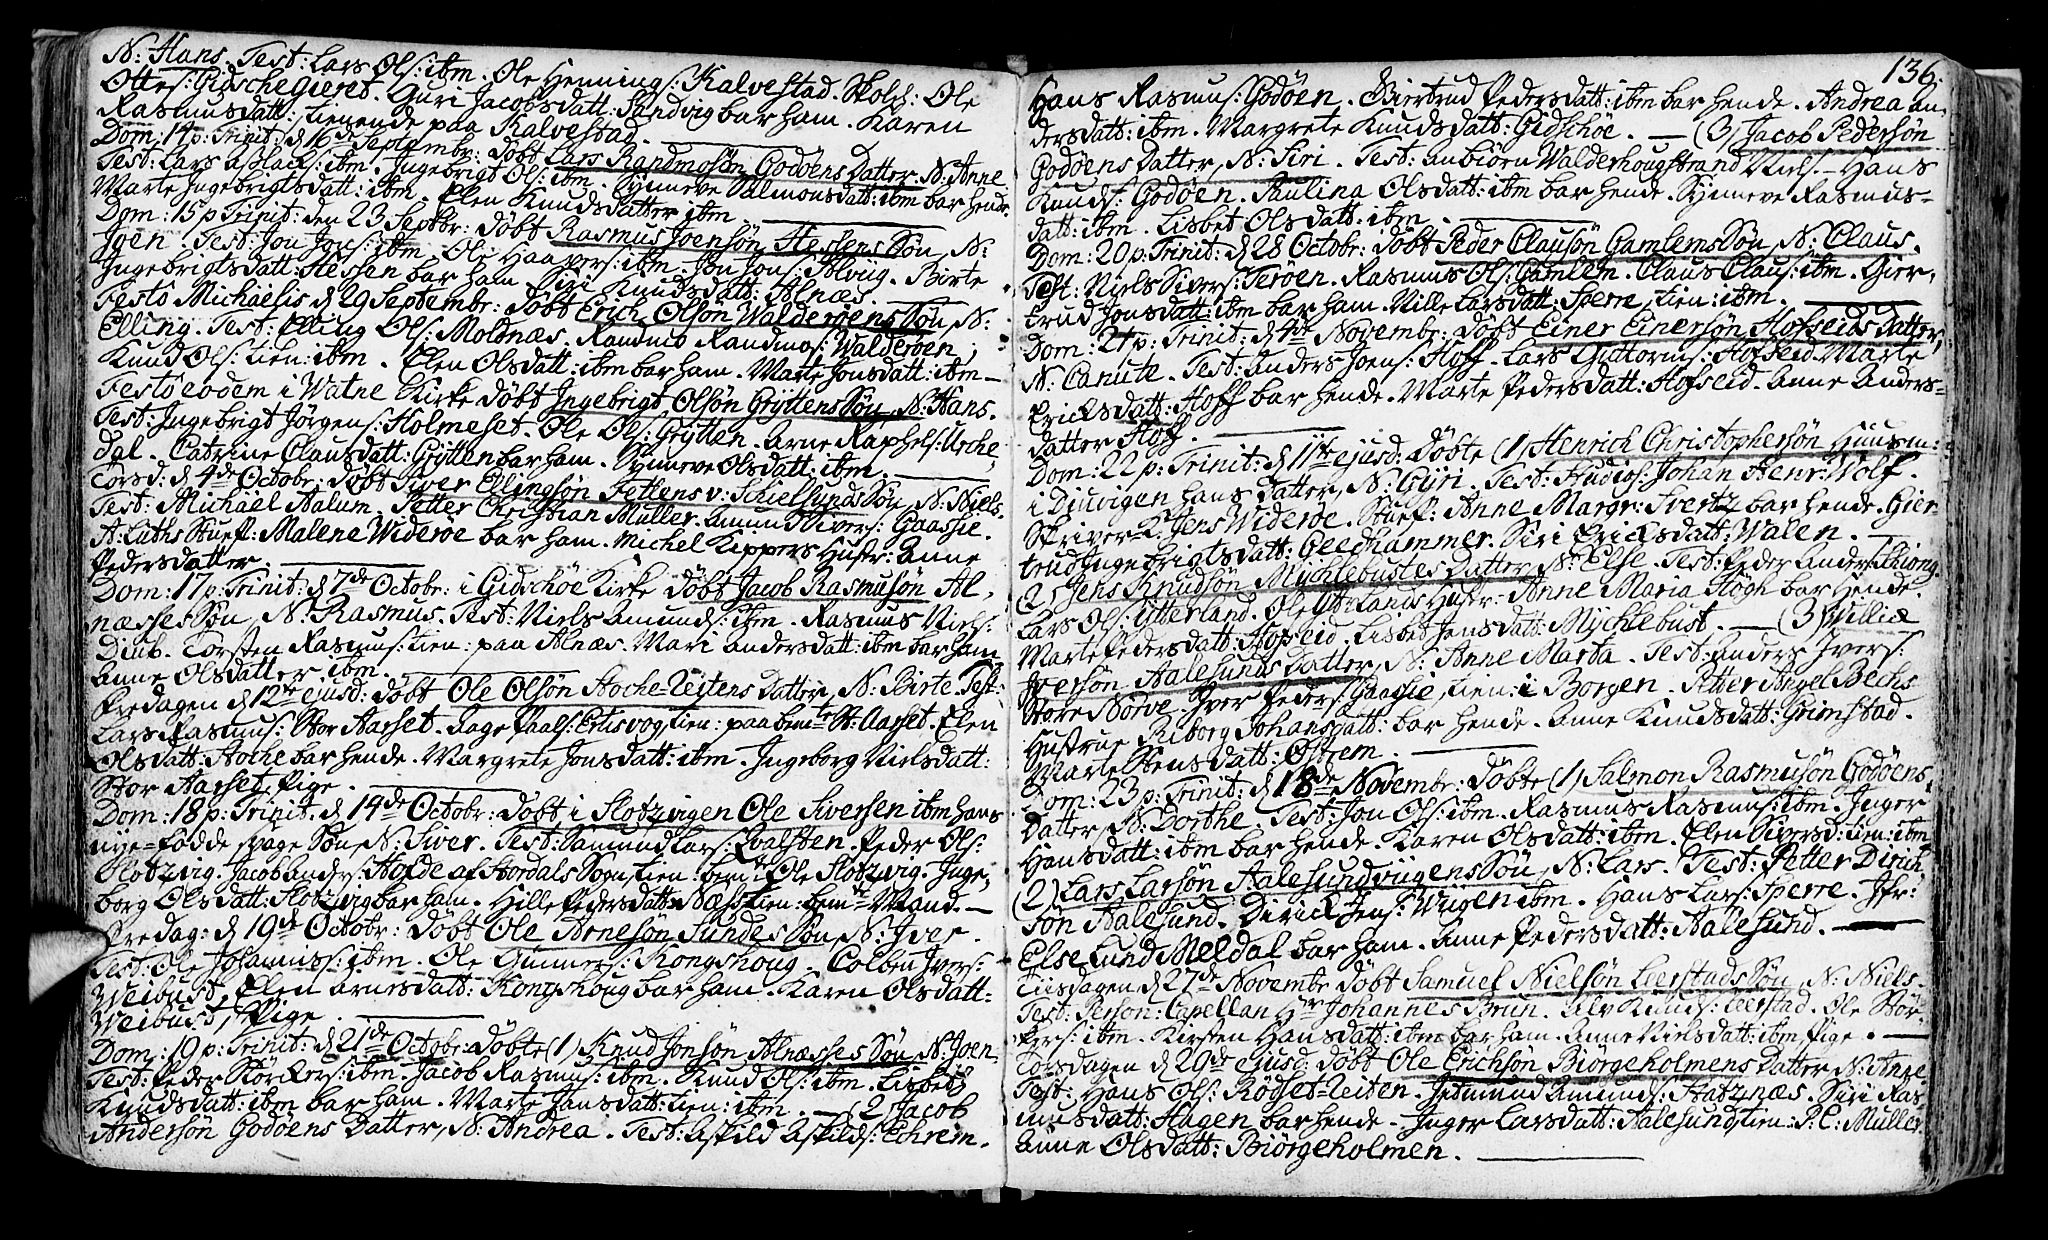 N: Hans. Test: Lars Ols: ibm. Ole Hennings: Kalvestad. Skolh: Ole
Ottes: Gidsche Gieret. Guri Jacobsdatt: Sandvig bar ham. Karen
Rasmusdatt: tienende paa Kalvestad.
Dom: 14 p: Trinit: d 16de Septembr: døbt Lars Randmosøn Godøens Datter N: Anne
Test: Lars Aslacks: ibm. Ingebrigt Ols: ibm. Synneve Salmonsdatt: ibm bar hende.
Marte Ingebrigtsdatt: ibm. Elen Knudsdatter ibm.
Dom: 15 p Trinit: den 23 Septbr: døbt Rasmus Joensøn Hessens Søn, N:
Joen. Test: Jon Jons: ibm. Ole Haavers: ibm. Jon Jons: Birte
Ingebrigtsdatt: Hessen bar ham. Siri Knudsdatt: Alnæs.
Festo Michaelis d 29 Septembr: døbt Erich Olsøn Walderøens Søn, N:
Elling. Test: Elling Ols: Molnæs. Randmo Randmos: Walderøen,
Knud Ols: tien: ibm. Elen Olsdatt: ibm bar ham. Marte Jonsdatt: ibm —
Festo eodem i Watne Kirke døbt Ingebrigt Olsøn Gryttens Søn, N: Hans.
Test: Ingebrigt Jørgens: Holmeset. Ole Ols: Grytten. Arne Raphels: Urche,
dal. Catrine Clausdatt: Grytten bar ham. Synneve Olsdatt: ibm.
Torsd: d 4de Octobr: døbt Siver Ellingsøn Fettens v: Schielsunds Søn, N: Niels.
Test: Michael Aalum. Petter Christian Müller. Amund Sivers: Gaasøe.
A: Luths Stuef: Malene Widerøe bar ham. Michel Kippers Hustr: Anne
Pedersdatter.
Dom: 17 p: Trinit: d 7de Octobr: i Gidschøe Kirke døbt Jacob Rasmusøn Al,
næsses Søn, N: Rasmus. Test: Niels Amunds: ibm. Rasmus Niels:
Diub. Torsten Rasmus: tien: paa Alnæs. Mari Andersdatt: ibm bar ham
Anne Olsdatter ibm.
Fredagen d 12te ejusd: døbt Ole Olsøn Hoche-Leitens Datter, N: Birte. Test:
Lars Rasmus: Stor Aarset. Aage Paals: Etisvog, tien: paa bemte St: Aarset. Elen
Olsdatt: Hoche bar hende. Margrete Jonsdatt: ibm. Ingeborg Nielsdatt:
Stor Aarset, Pige.
Dom: 18 p: Trinit. d 14de Octobr: døbt i Slotzvigen Ole Siversen ibm hans
nye-fødde svage Søn, N: Siver. Test: Samund Lars: Qvalsten. Peder Ols:
Slotzvig. Jacob Anders: Hofde af Stordals Sogn, tien: bemte Ole Slotzvig. Inge,
borg Olsdatt: Slotzvig bar ham. Hille Pedersdatt: Næss, tien: bemte Mand. —
Fredag: d 19de Octobr: døbt Ole Arnesøn Sundes Søn, N: Iver.
Test: Ole Johanniss: ibm. Ole Gunners: Kongshoug. Colben Ivers:
Weibust, Elen Arnesdatt: Kongshoug bar ham. Karen Olsdatt:
Weibust, Pige.
Dom: 19 p: Trinit: d 21de Octobr: døbte (1) Knud Jonsøn Alnæsses Søn, N: Joen.
Test: Peder Størckers: ibm. Jacob Rasmus: ibm. Knud Ols: ibm. Lisbeth
Knudsdatt: ibm bar ham. Marte Jansdatt: tien: ibm. — (2) Jacob
Andersøn Godøens Datter, N: Andrea. Test: Askild Askilds: Ehrem.
136.
Hans Rasmus: Godøen. Giertrud Pedersdatt: ibm bar hende. Andrea An,
dersdatt: ibm. Margrete Knudsdatt: Gidschøe. — (3) Jacob Pedersøn
Godøens Datter, N: Siri. Test: Anbiørn Walderhougstrand Niels. — Hans
Knuds: Godøen. Paulina Olsdatt: ibm bar hende. Synneve Rasmus-
datt: ibm. Lisbet Olsdatt: ibm.
Dom: 20 p: Trinit: d 28 Octobr: døbt Peder Clausøn Gamlems Søn, N: Claus.
Test: Niels Sivers: Terøen. Rasmus Ols: Gamlem. Claus Claus: ibm. Gier,
trud Jonsdatt: ibm bar ham. Nille Larsdatt: Sperre, tien: ibm.
Dom: 21 p: Trinit: d 4de Novembr: døbt Einer Einersøn Hofseids Datter,
N: Canute. Test: Anders Joens: Hoff. Lars Guttorms: Hofseid. Marte
Ericksdatt: Hoff bar hende. Marte Pedersdatt: Hofseid. Anne Anders-
datter Hoff.
Dom: 22 p: Trinit: d 11te ejusd: døbte (1) Henrich Christophersøn Huusm:
i Diuvigen hans Datter, N: Gyri. Test: Studios: Johan Henr: Wolf.
Skriver K: Jens Widerøe. Stuef: Anne Margr: Svertz bar hende. Gier,
trud Ingebrigtsdatt: Geedhammer. Siri Ericksdatt: Walen. —
(2) Jens Knudsøn Mychlebustes Datter, N: Else. Test: Peder Anders: Skiong.
Lars Ols: Ytterland. Ole Ytterlands Hustr: Anne Maria Høgh bar hende.
Marte Pedersdatt: Hofseid. Lisbet Jensdatt: Mychlebust. — (3) Willie
Iversøn Aalesunds Datter, N: Anne Marta. Test: Anders Ivers:
Store Nørve. Iver Peders: Gaasøe, tien: i Borgen. Petter Angel Bechs
Hustrue Riborg Johansdatt: bar hende. Anne Knudsdatt: Grimstad.
Marte Stensdatt: Østrem.
Dom: 23 p: Trinit: d 18de Novembr: døbte (1) Salmon Rasmusøn Godøens
Datter, N: Dorthe. Test: Jon Ols: ibm. Rasmus Rasmus: ibm. Inger
Hansdatt: ibm bar hende. Karen Olsdatt: ibm. Elen Siversd: tien: ibm.
(2) Lars Larsøn Aalesundvigens Søn, N: Lars. Test: Petter Dirich,
søn Aalesund. Dirick Jens: Wiigen ibm. Hans Lars: Sperre. Jfr:
Else Lund Meldal bar ham. Anne Pedersdatt: Aalesund. —
Tiisdagen d 27de Novembr døbt Samuel Nielsøn Leerstads Søn, N: Niels.
Test: Person: Capellan Hr Johannes Brun. Alv Knuds: Leerstad. Ole Stør,
kers: ibm. Kirsten Hansdatt: ibm bar ham. Anne Nielsdatt: ibm, Pige. —
Torsdagen d 29de ejusd: døbt Ole Erichsøn Biørgeholmens Datter N: Anne.
Test: Hans Ols: Rødset-Leiten. Jetmund Amunds: Hatznæs. Siri Ras,
musdatt: Hagen bar hende. Inger Larsdatt: Aalesund, tien: P: C: Müller.
Anne Olsdatt: Biørgeholmen.